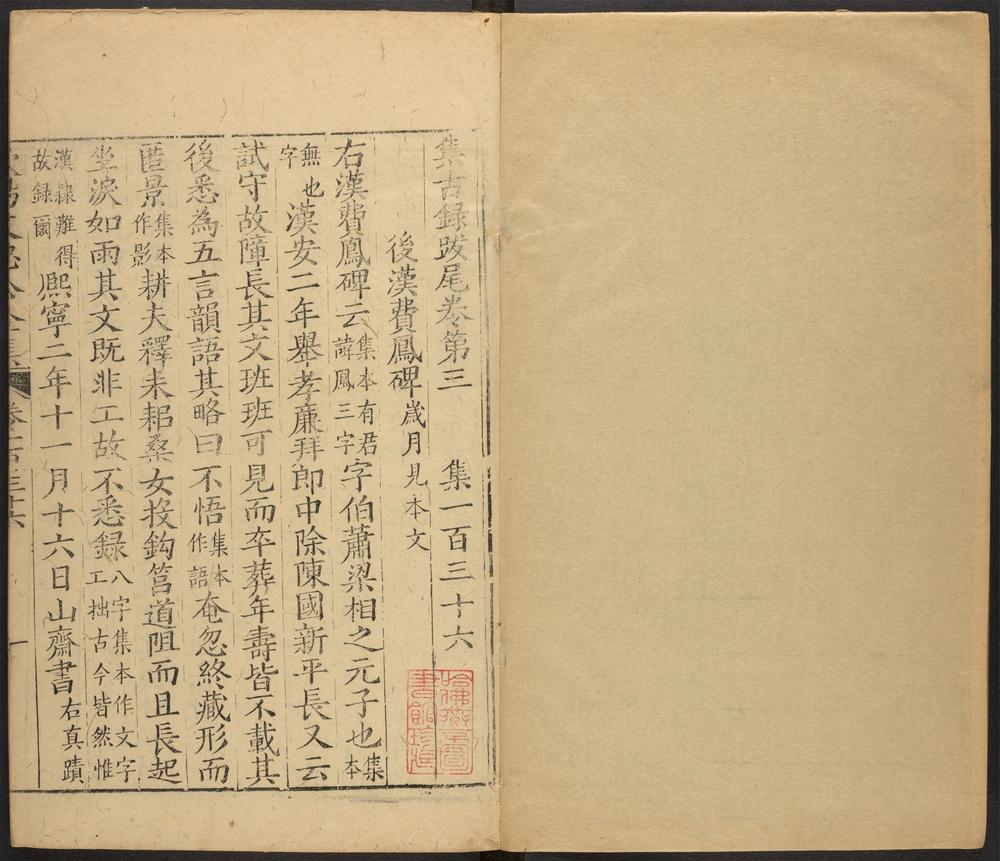 集古録跋尾卷第三　集一百三十六
後漢費鳳碑歲月見本文
右漢費鳳碑云集本有君諱鳳三字字伯蕭梁相之元子也集本
無也字漢安二年舉孝廉拜郎中除陳國新平長又云
試守故障長其文班班可見而卒葬年壽皆不載其
後悉為五言韻語其略曰不悟集本作語奄忽終藏形而
匿景集本作影耕夫釋耒耜桑女投鈎筥道阻而且長起
坐淚如雨其文既非工故不悉録八字集本作文字工拙古今皆然惟
漢隸難得故録爾熙寧二年十一月十六日山齋書右真蹟
文忠公全集　卷百三十六　一
哈佛燕京圖
書館珍藏